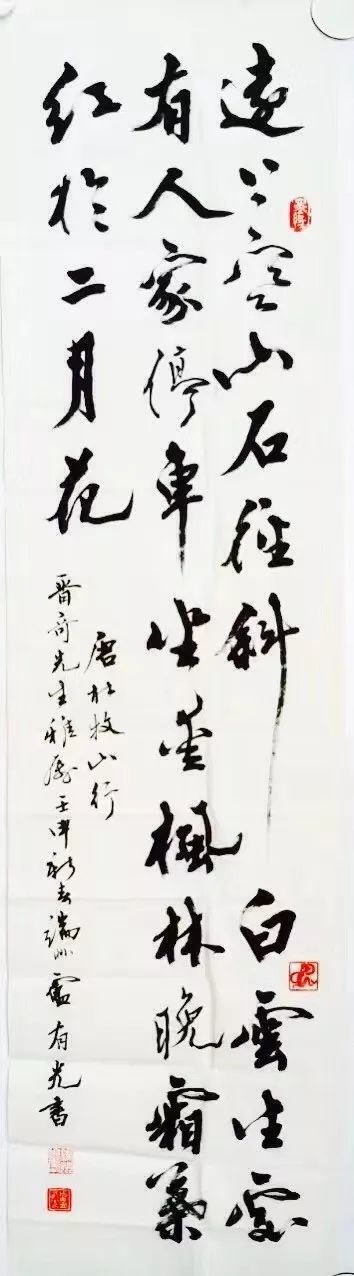 遠上寒山石徑斜白雲生處
有人家停車坐愛楓林晚霜葉
紅於二月花
唐杜牧山行
晋奇先生雅屬壬申新春端州盧有光書